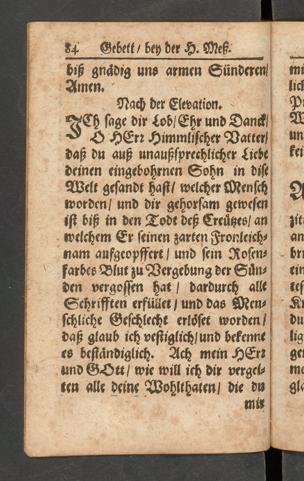 84. Gebett / bey der H. Meß.
biß gnädig uns armen Sünderen/
Amen.
Nach der Elevation.
JCh sage dir Lob/ Ehr und Danck/
O HErr Himmlischer Vatter/
daß du auß unaußsprechlicher Liebe
deinen eingebohrnen Sohn in dise
Welt gesandt hast/ welcher Mensch
worden/ und dir gehorsam gewesen
ist biß in den Todt deß Creützes/ an
welchem Er seinen zarten Fronleich-
nam auffgeopffert/ und sein Rosen-
farbes Blut zu Vergebung der Sün-
den vergossen hat/ dardurch alle
Schrifften erfüllet/ und das Men-
schliche Geschlecht erlöset worden/
daß glaub ich vestiglich/ und bekenne
es beständiglich. Ach mein HErr
und GOtt/ wie will ich dir vergel-
ten alle deine Wohlthaten/ die du
mir